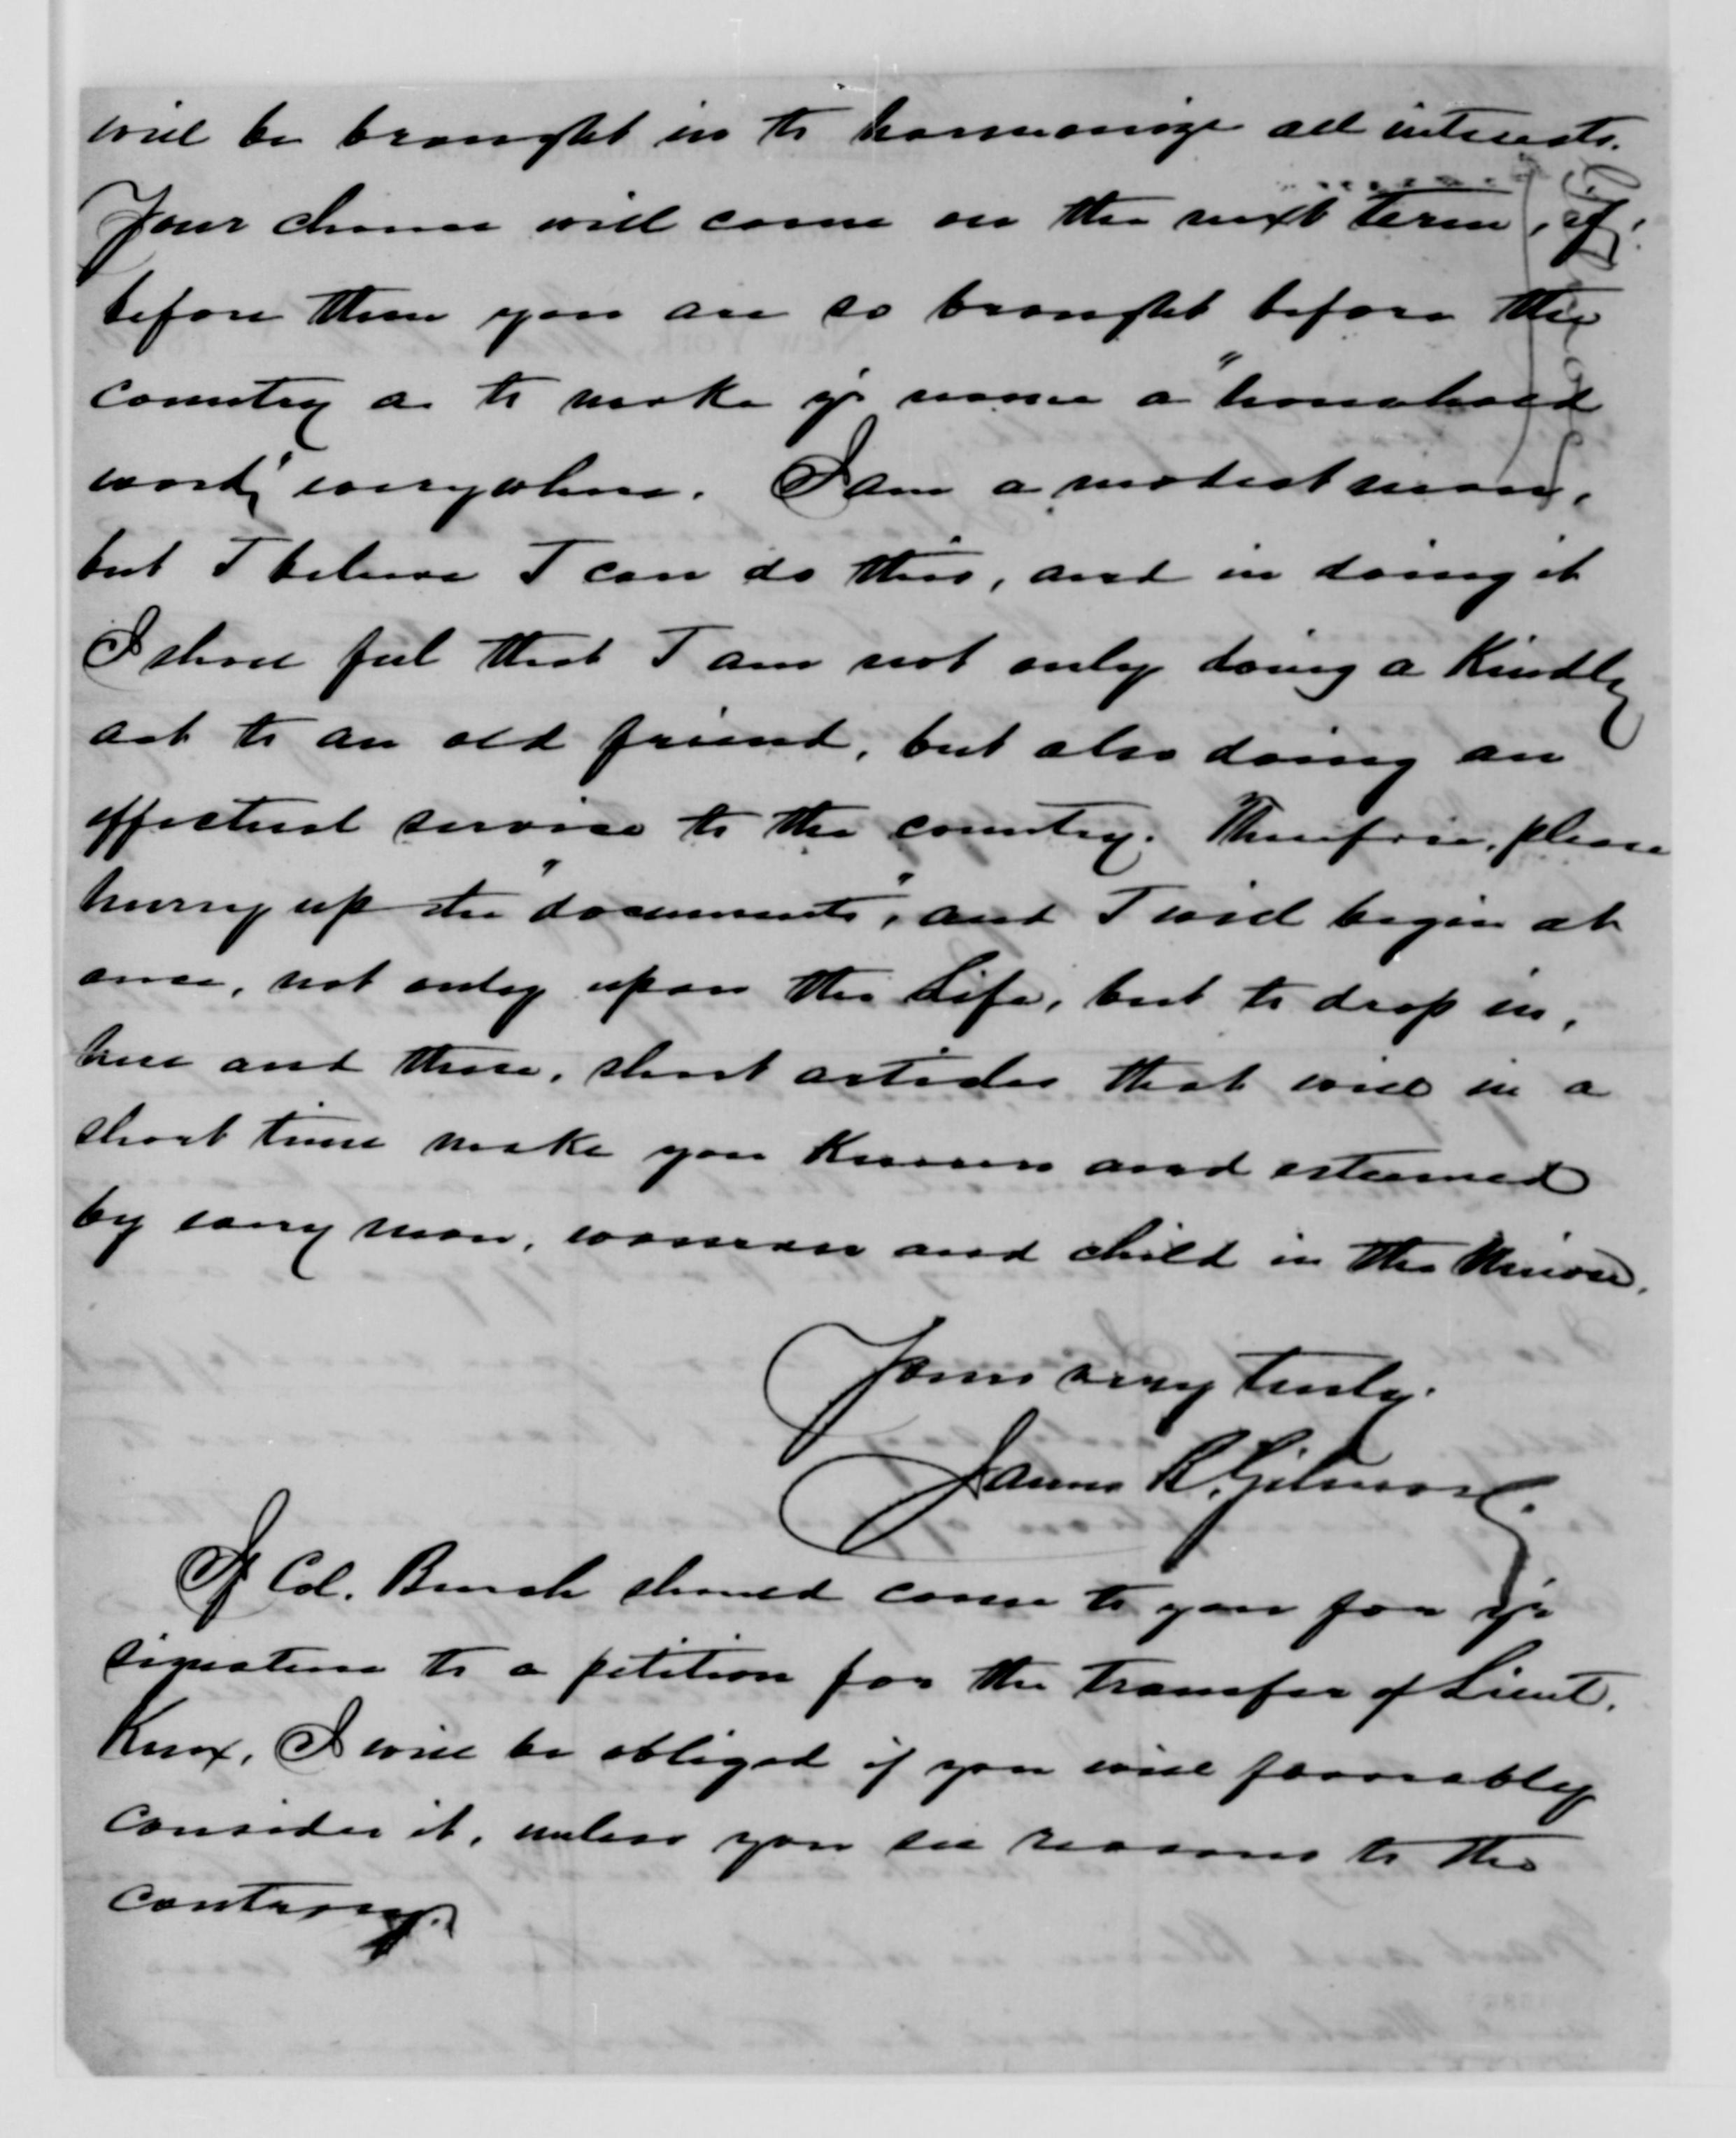 will be brought in to harmonize all interests.
Your chance will come on the next term, if,
before then you are so brought before the
country as to make yr name a "household
word," everywhere. I am a modest man,
but I believe I can do this, and in doing it
I shall feel that I am not only doing a Kindly
act to an old friend, but also doing an
effectual service to the country. Therefore, please
hurry up the "documents", and I will begin at
once, not only upon the Life, but to drop in,
here and there, short articles that will in a
short time make you Known and esteemed
by every man, woman and child in the Union.
Yours very truly.
James R. Gilmore.
If Col. Burch should come to you for yr
signature to a petition for the transfer of Lieut.
Knox, I will be obliged if you will favorably
consider it, unless you see reasons to the
contrary.